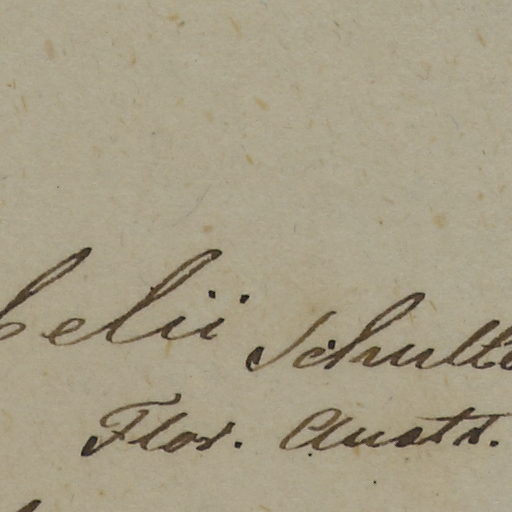 belii Schult
Flor. Austr.